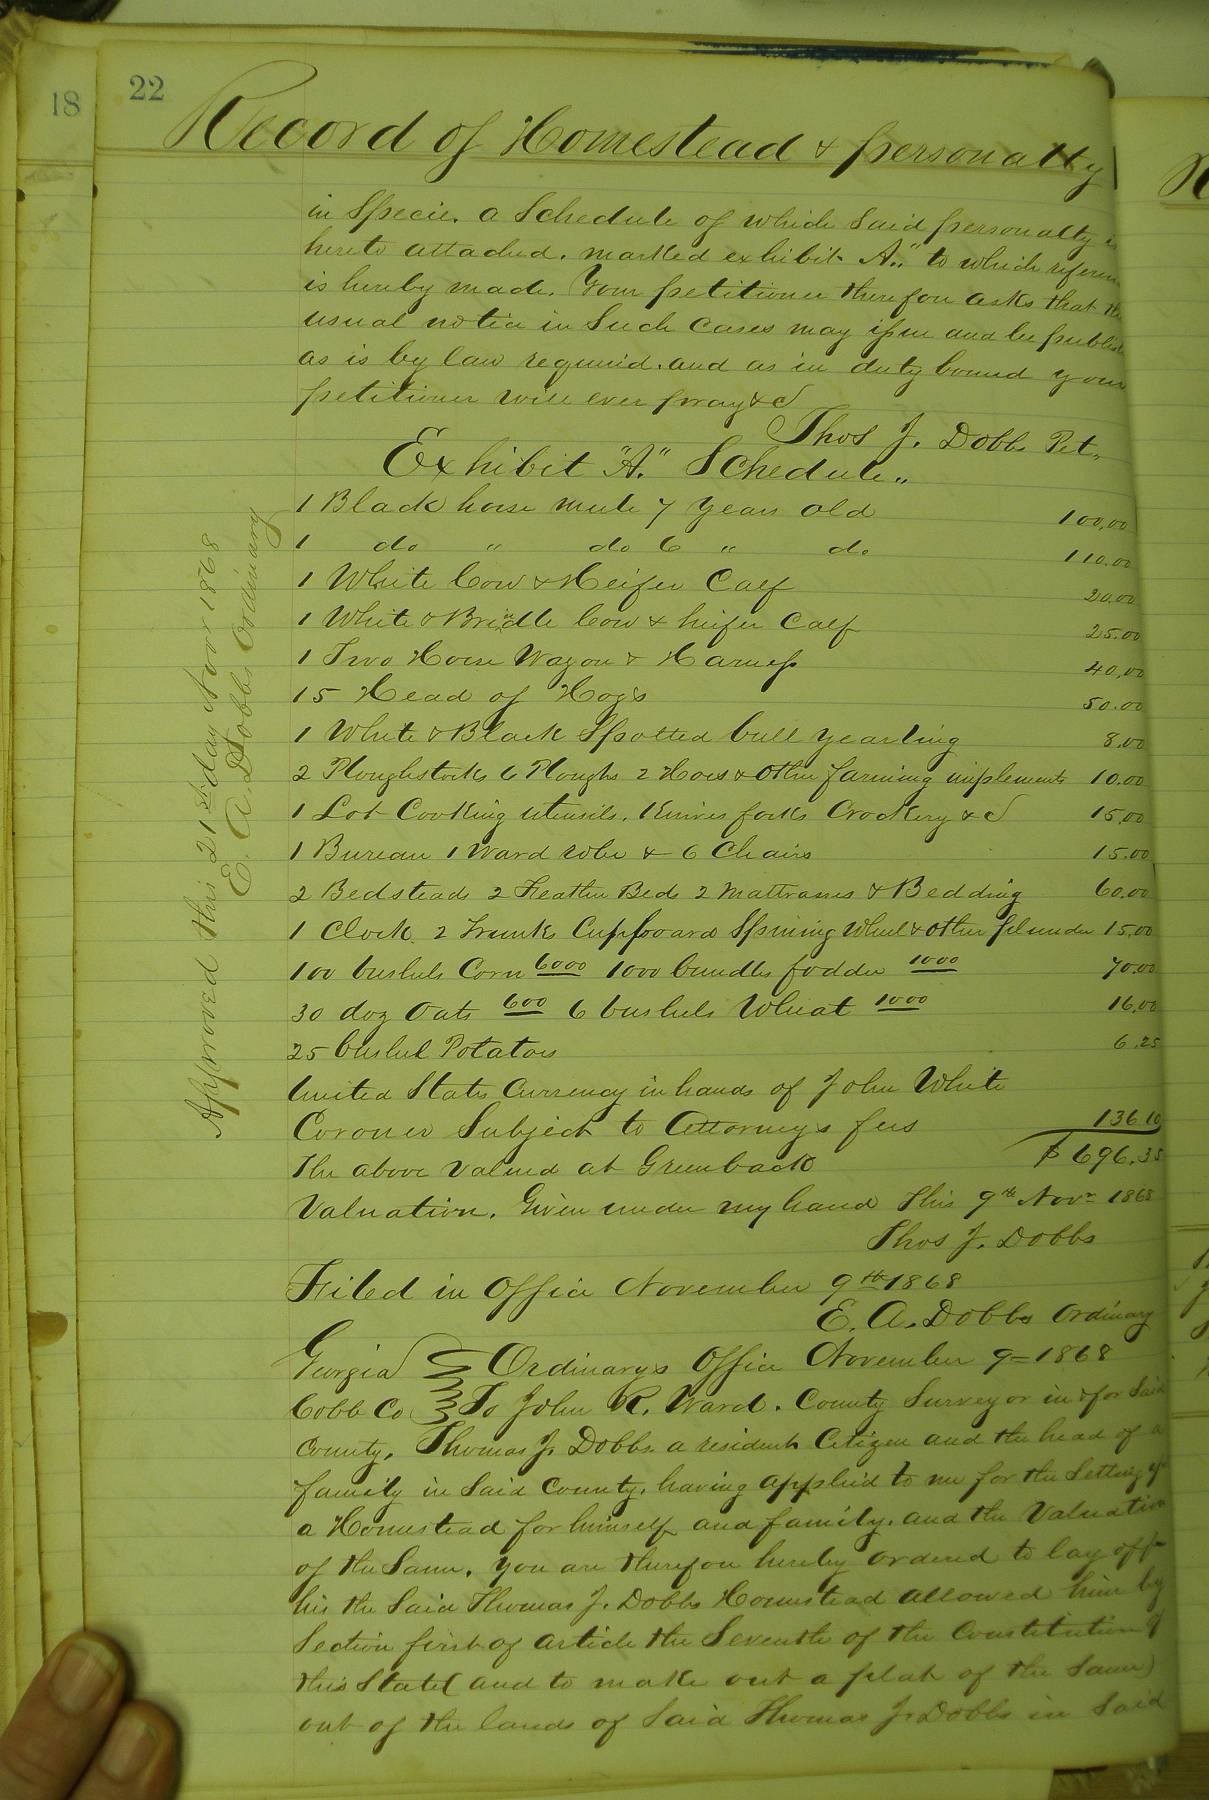 18
22
Record of Homestead & personalty
in Specie. a Schedule of which Said personalty
hereto attached. marked exhibit A." to which referen
is hereby made. Your petitioner therefore asks that the
usual notice in Such Cases may issue and be publish
as is by law required. and as in duty bound your
petitioner will ever pray &c
Thos J. Dobbs Pet.
Exhibit "A." Schedule
1 Black horse mule 7 years old 100.00
1 do " do 6 " do 110.00
1 White Cow & Heifer Calf 20.00
1 White & Brindle Cow & heifer Calf 25.00
1 Two Horse Wagon & Harness 40.00
15 Head of Hogs 50.00
1 White & Black Spotted bull yearling 8.00
2 Ploughstocks 6 Ploughs 2 Hoes & other farming implements 10.00
1 Lot Cooking utensils. Knives forks Crockery &c 15.00
1 Bureau 1 Ward robe & 6 Chairs 15.00
2 Bedsteads 2 Feather Beds 2 Mattrasses & Bedding 60.00
1 Clock 2 Trunks Cupboard Spining Wheel & other plunder 15.00
100 bushels Corn 6000 1000 bundles fodder 1000 70.00
30 doz Oats 600 6 bushels Wheat 1000 16.00
25 bushel Potatoes 6.25
United States Currency in hands of John White
Coroner Subject to Attorneys fees 136 10
The above valued at Greenback $696.35
Valuation. Given under my hand This 9th Novr 1868
Thos J. Dobbs
Filed in Office November 9th 1868
E. A. Dobbs Ordinary
Georgia Ordinarys Office November 9 1868
Cobb Co To John R. Ward. County Surveyor in & for Said
County. Thomas J. Dobbs a resident Citizen and the head of a
family in Said County. having applied to me for the Setting
a Homestead for himself and family. and the Valuation
of the Same. you are therefore hereby ordered to lay off
his the Said Thomas J. Dobbs Homestead allowed him by
Section first of article the Seventh of the Constitution of
this State (and to make out a plat of the Same)
out of the lands of Said Thomas J. Dobbs in Said
Approved this 21st day Novr 1868
E. A. Dobbs Ordinary